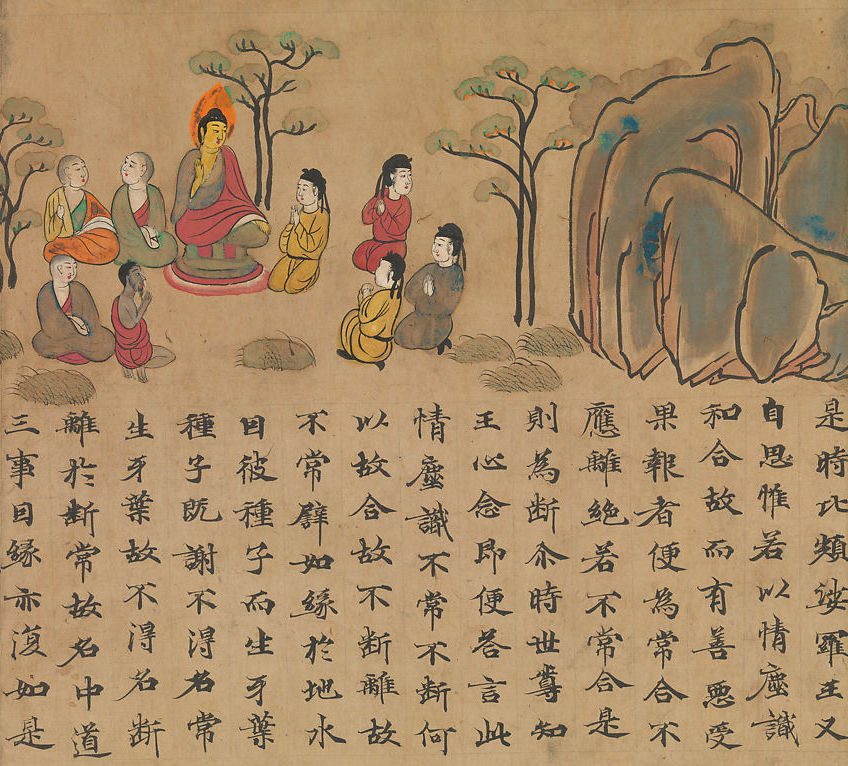 是時比頻娑羅王又
自思惟若以情塵識
和合故而有善惡受
果報者便為常合不
應離絕若不常合是
則為断尒時世尊知
王心念即便答言此
情塵識不常不断何
以故合故不断離故
不常譬如緣於地水
因彼種子而生牙葉
種子既謝不得名常
生牙葉故不得名断
離於断常故名中道
三事因緣亦復如是